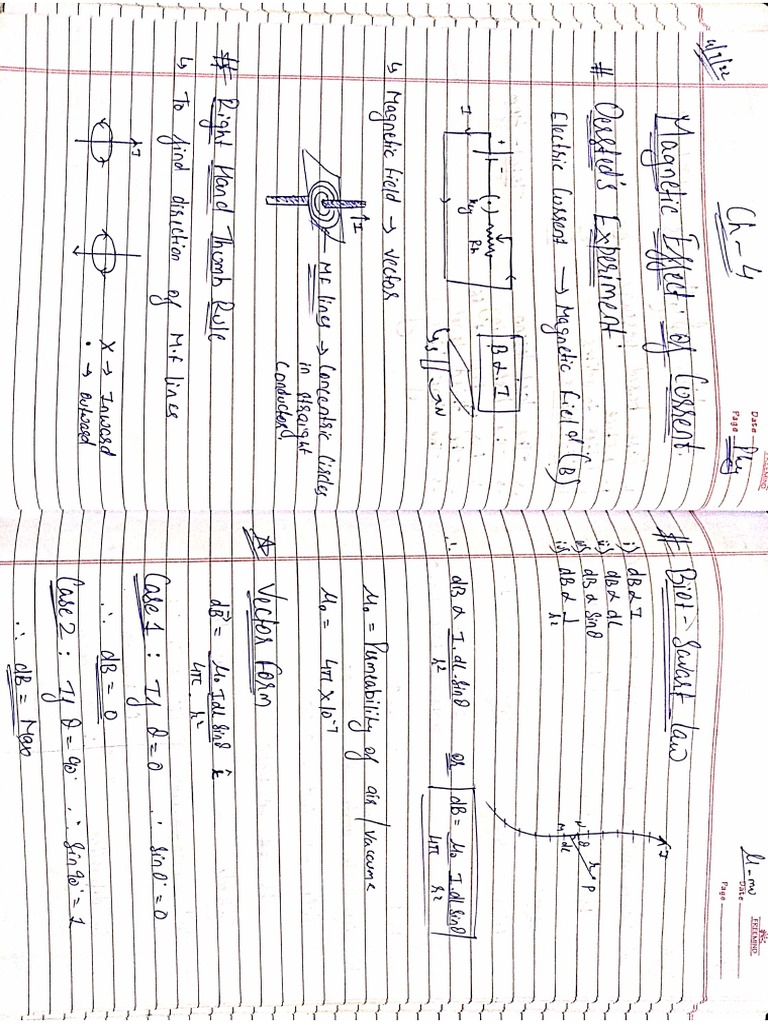 Ch-4
Date
Page
Phy
Magnetic Effect of Current.
# Oersted's Experiment
Electric Current → Magnetic field (B)
I
+ -
(·)
Key
Rh
B ∝ I
S
N
↳ Magnetic field → vector
I
M.F lines → Concentric Circles
in straight
conductor.
# Right Hand Thumb Rule
↳ To find direction of M.F lines
I
X → Inward
• → outward
FREEMIND
Date
Page
# Biot-Savart law
i) dB ∝ I
ii) dB ∝ dL
iii) dB ∝ sinθ
iv) dB ∝ 1/r²
I
N
M
dl
θ
r
P
∴ dB ∝ I.dl.sinθ/r² or dB = μ₀/4π I.dl sinθ/r²
μ₀ = Permeability of air/vacuume
μ₀ = 4π × 10⁻⁷
☆ Vector form
dB⃗ = μ₀/4π . Idl sinθ/r² r̂
Case 1 : If θ = 0 ∴ sin0° = 0
∴ dB = 0
Case 2 : If θ = 90° ∴ sin90° = 1
∴ dB = Max